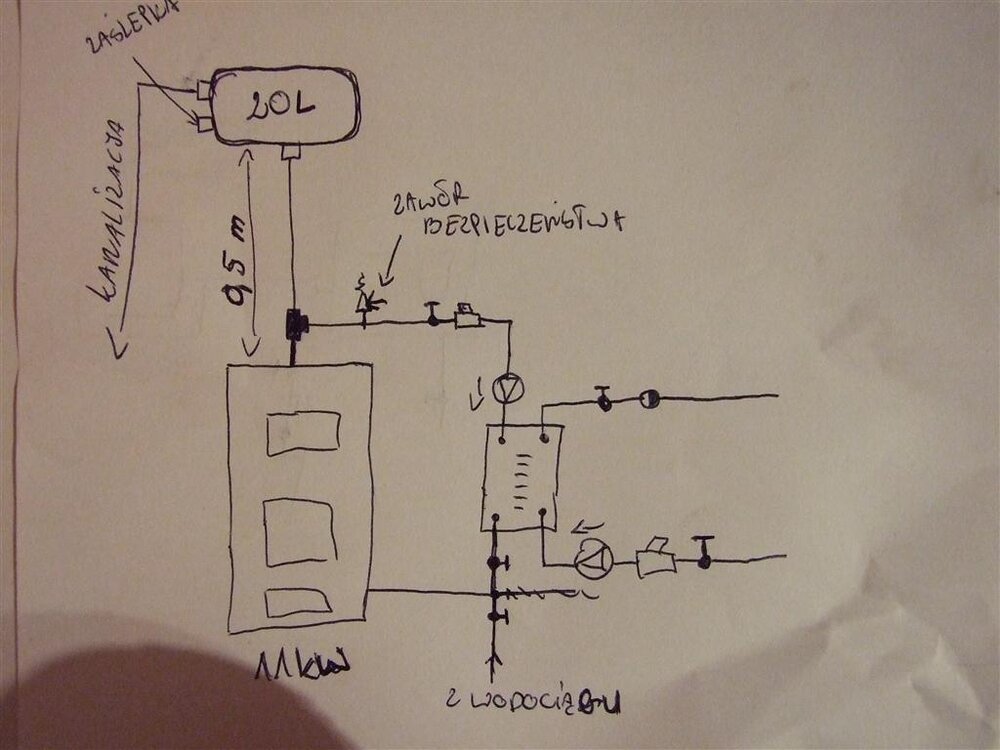 ZAŚLEPKA
20L
KANALIZACJA
0,5 m
ZAWÓR
BEZPIECZEŃSTWA
11kW
Z WODOCIĄGU